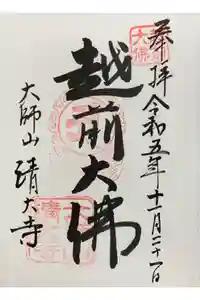 奉拝 令和五年十一月二十一日
越前大佛
大師山 清大寺